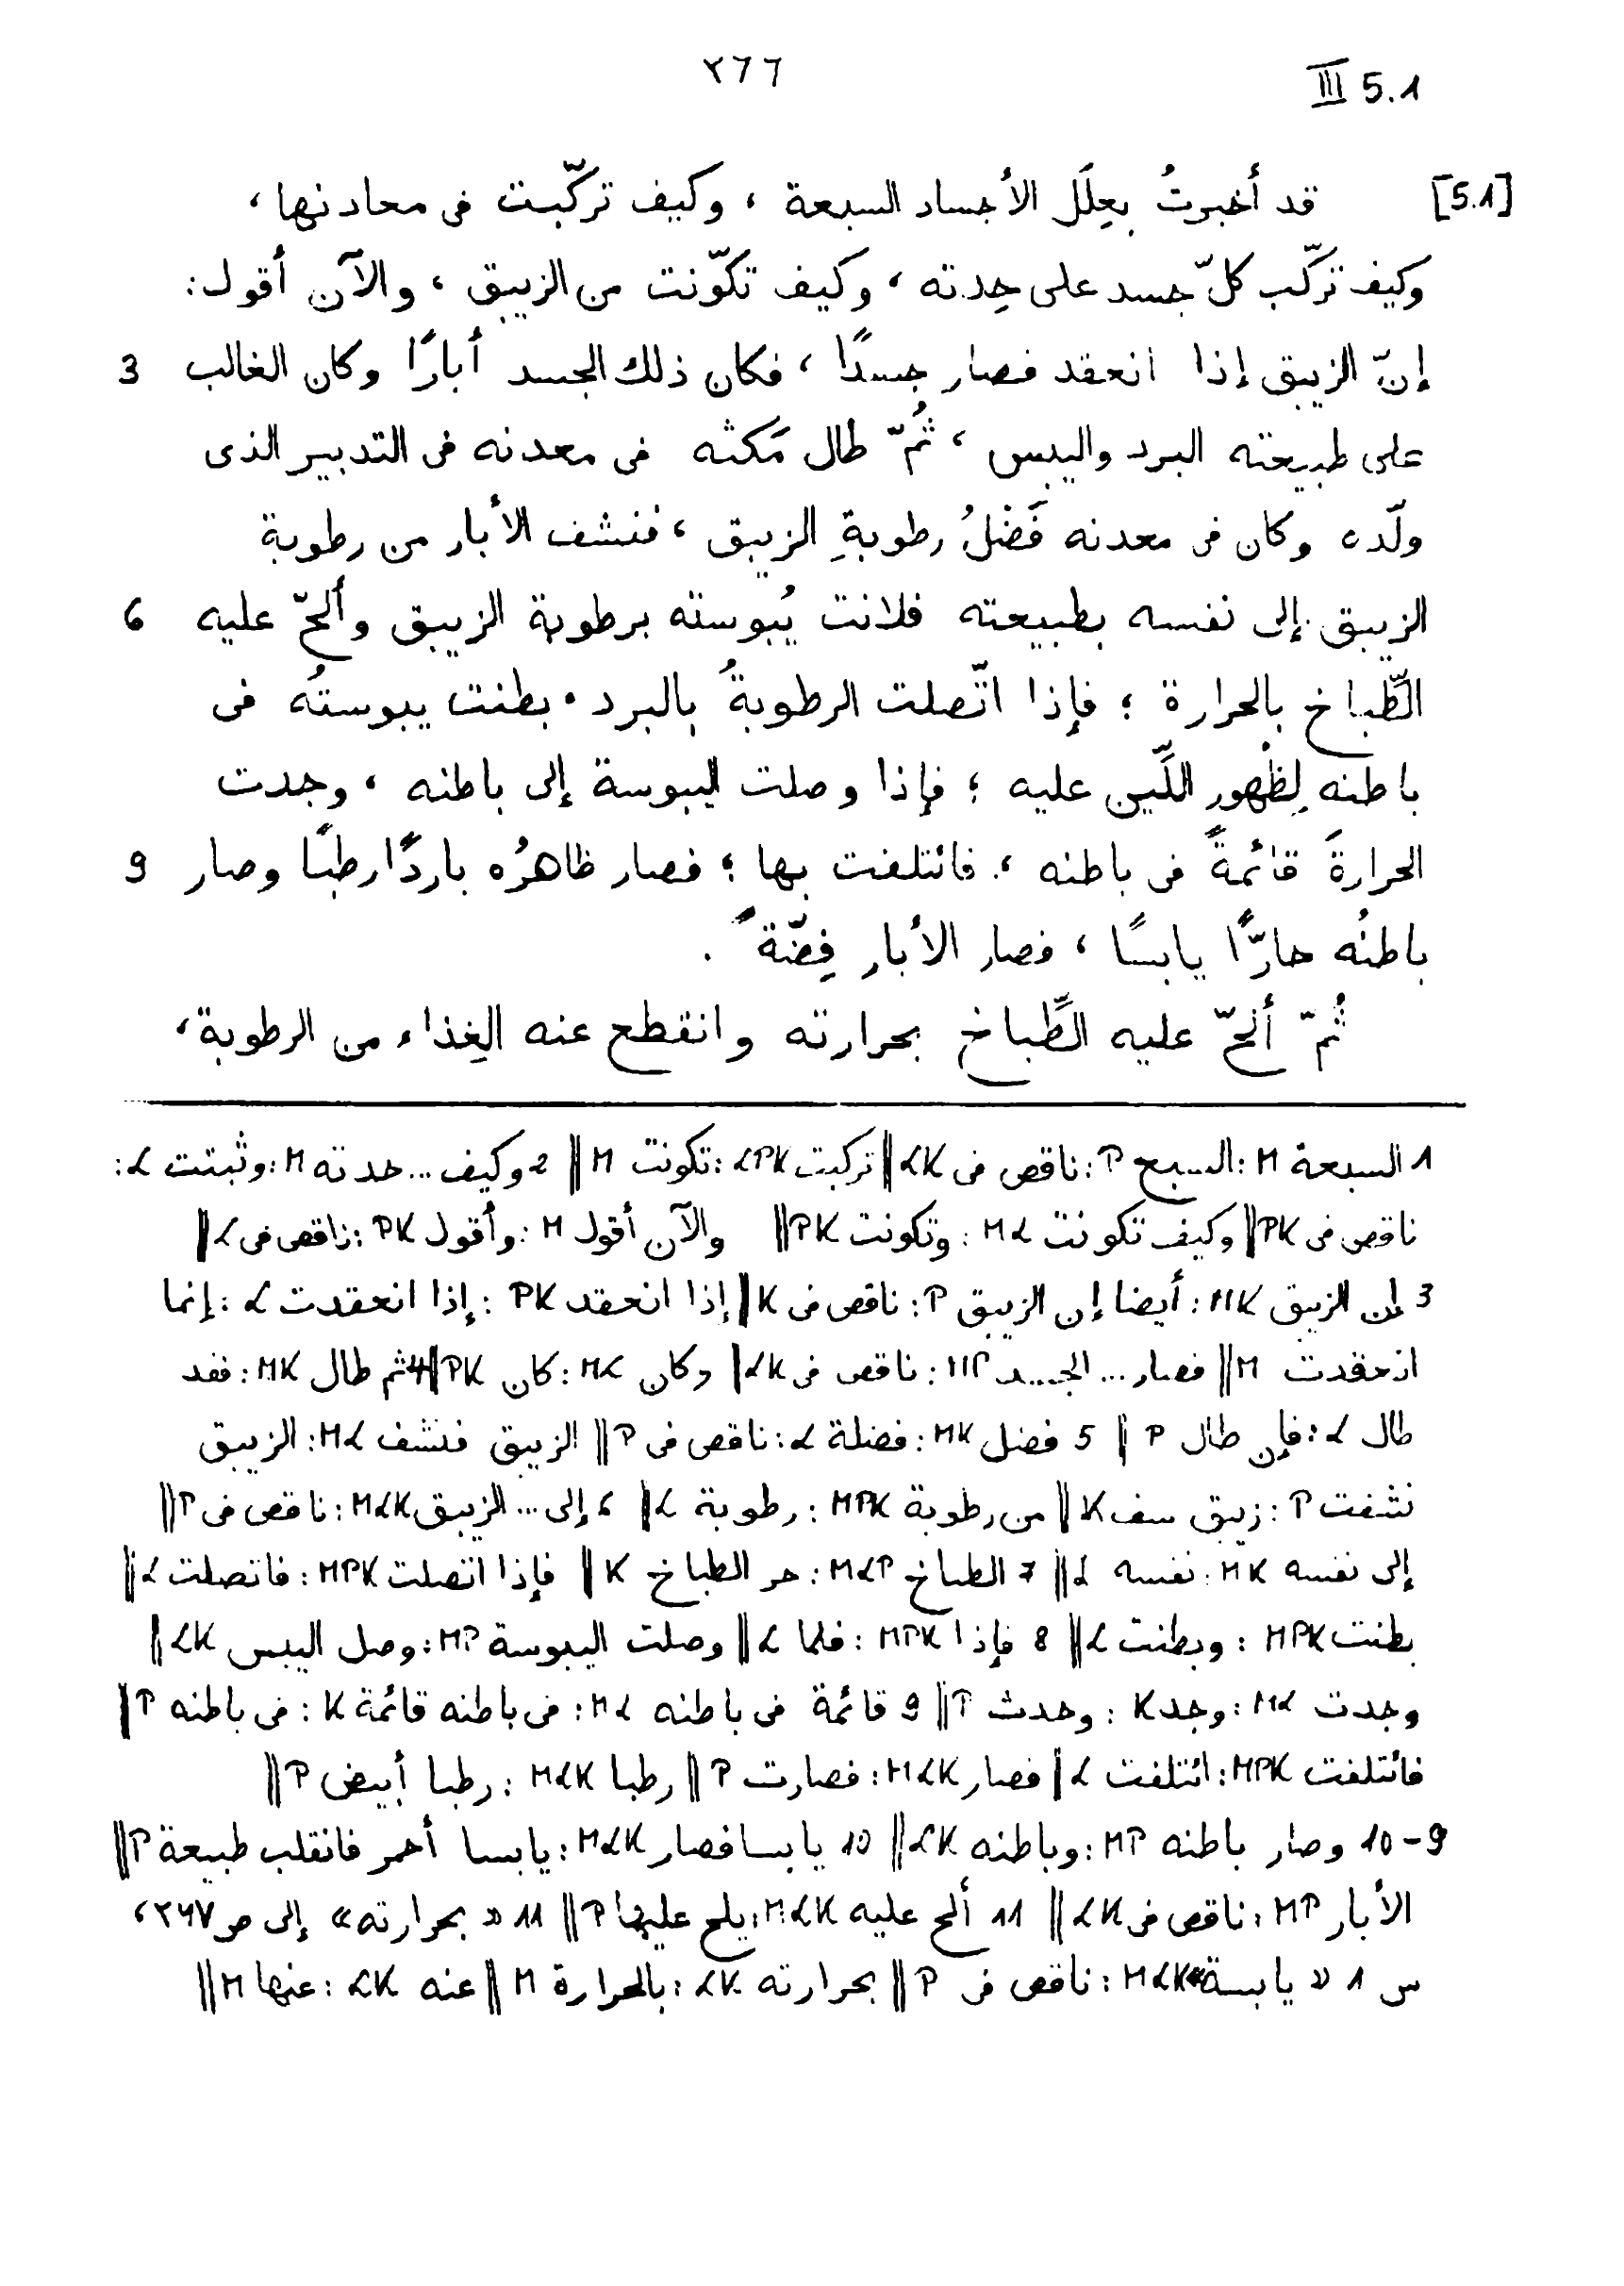 ٢٦٦
III 5.1
[5.1] قد أخبرتُ بعِلَل الأجساد السبعة ، وكيف تركّبت فى معادنها ،
وكيف تركّب كلّ جسد على حِدته ، وكيف تكوّنت من الزيبق ، والآن أقول :
إنّ الزيبق إذا انعقد فصار جسدًا ، فكان ذلك الجسد أبارًا وكان الغالب 3
على طبيعته البرد واليبس ، ثُمّ طال مَكثه فى معدنه فى التدبير الذى
ولّده وكان فى معدنه فَضْلُ رطوبةِ الزيبق ، فنشف الأبار من رطوبة
الزيبق إلى نفسه بطبيعته فلانت يُبوسته برطوبة الزيبق وألحّ عليه 6
الطَّباخ بالحرارة ؛ فإذا اتّصلت الرطوبةُ بالبرد ، بطنت يبوستُه فى
باطنه لِظُهور اللَّين عليه ؛ فإذا وصلت اليبوسة إلى باطنه ، وجدت
الحرارةَ قائمةً فى باطنه ، فائتلفت بها ؛ فصار ظاهرُه باردًا رطبًا وصار 9
باطنُه حارًّا يابسًا ، فصار الأبار فِضّةً .
ثُمّ ألحّ عليه الطَّباخ بحرارته وانقطع عنه الغِذاء من الرطوبة ،
1 السبعة M : السبع P : ناقص فى LK || تركبت LPK : تكونت M || 2 وكيف ... حدته M : وثبتت L :
ناقص فى PK || وكيف تكونت ML : وتكونت PK || والآن أقول M : وأقول PK : ناقص فى L ||
3 إن الزيبق MK : أيضا إن الزيبق P : ناقص فى K || إذا انعقد PK : إذا انعقدت L : إنما
انعقدت M || فصار ... الجسد MP : ناقص فى LK || وكان ML : كان PK || 4 ثم طال MK : فقد
طال L : فإن طال P || 5 فضل MK : فضلة L : ناقص فى P || الزيبق فنشف ML : الزيبق
نشفت P : زيبق سف K || من رطوبة MPK : رطوبة L || 6 إلى ... الزيبق MLK : ناقص فى P ||
إلى نفسه MK : نفسه L || 7 الطباخ MLP : حر الطباخ K || فإذا اتصلت MPK : فاتصلت L ||
بطنت MPK : وبطنت L || 8 فإذا MPK : فلما L || وصلت اليبوسة MP : وصل اليبس LK ||
وجدت ML : وجد K : وحدث P || 9 قائمة فى باطنه ML : فى باطنه قائمة K : فى باطنه P ||
فائتلفت MPK : ائتلفت L || فصار MLK : فصارت P || رطبا MLK : رطبا أبيض P ||
9-10 وصار باطنه MP : وباطنه LK || 10 يابسا فصار MLK : يابسا أحمر فانقلب طبيعة P ||
الأبار MP : ناقص فى LK || 11 ألح عليه MLK : يلح عليها P || 11 « بحرارته » إلى ص ٢٦٧ ،
س 1 « يابسة » MLK : ناقص فى P || بحرارته LK : بالحرارة M || عنه LK : عنها M ||